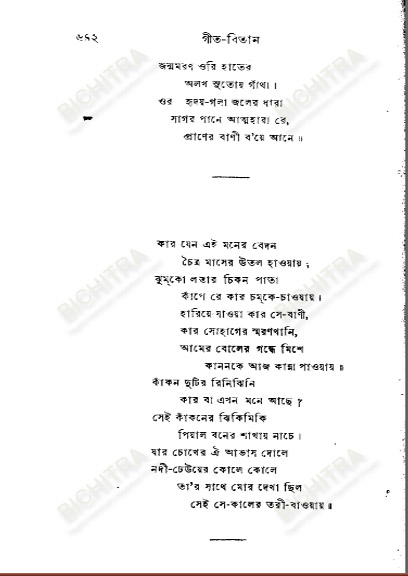 ৬৭২
গীত-বিতান
জন্মমরণ ওরি হাতের
অলখ সুতোয় গাঁথা।
ওর হৃদয়-গলা জলের ধারা
সাগর পানে আত্মহারা রে,
প্রাণের বাণী ব'য়ে আনে॥
কার যেন এই মনের বেদন
চৈত্র মাসের উতল হাওয়ায়;
ঝুম্‌কো লতার চিকন পাতা
কাঁপে রে কার চম্‌কে-চাওয়ায়।
হারিয়ে যাওয়া কার সে-বাণী,
কার সোহাগের স্মরণখানি,
আমের বোলের গন্ধে মিশে
কাননকে আজ কান্না পাওয়ায়॥
কাঁকন দুটির রিনিঝিনি
কার বা এখন মনে আছে?
সেই কাঁকনের ঝিকিমিকি
পিয়াল বনের শাখায় নাচে।
যার চোখের ঐ আভাস দোলে
নদী-ঢেউয়ের কোলে কোলে
তা'র সাথে মোর দেখা ছিল
সেই সে-কালের তরী-বাওয়ায়॥
BICHITRA
BICHITRA
BICHITRA
BICHITRA
BICHITRA
BICHITRA